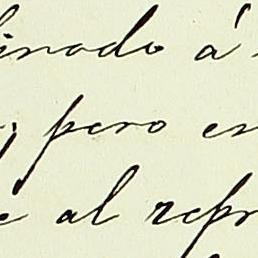 inado á
; pero en
e al repr